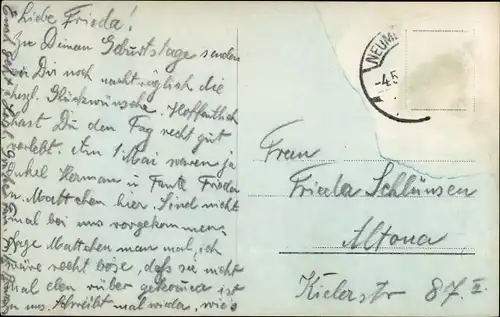 Liebe Frieda!
Zu Deinem Geburtstage senden
wir Dir noch nachträglich die
herzl. Glückwünsche. Hoffentlich
hast Du den Tag recht gut
verlebt. Am 1 Mai waren ja
Onkel Herman u Tante Frieda
u. Mattchen hier. Sind nicht
mal bei uns vorgekommen,
sage Mattchen man mal, ich
wäre recht böse, daß sie nicht
mal eben rüber gekomen ist
zu uns. Schreibt mal wieder, wie's
NEUM
-4.5
Frau
Frieda Schlünsen
Altona
Kielerstr 87 II.